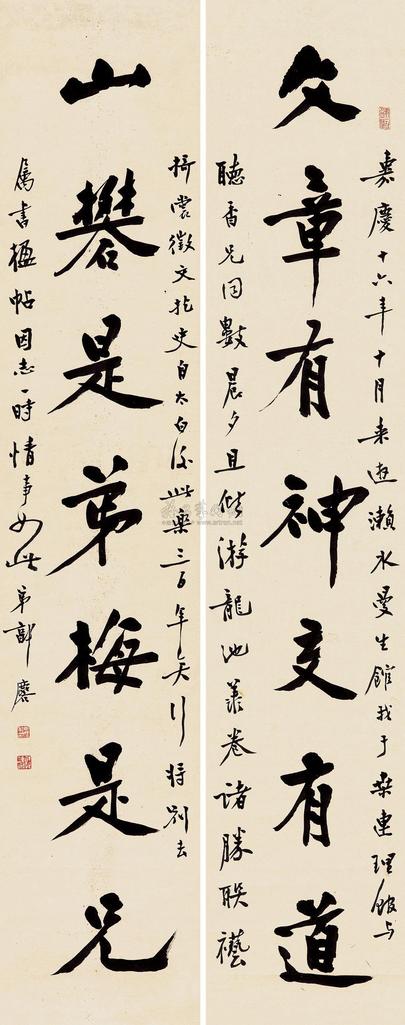 嘉慶十六年十月來遊瀨水曼生館我于桑連理館與
文章有神交有道
聽香兄同數晨夕且偕游龍池善卷諸勝聯襼
搴裳徵文托史自太白後此樂三百年矣行將別去
山礬是弟梅是兄
屬書楹帖因志一時情事如此弟郭麐